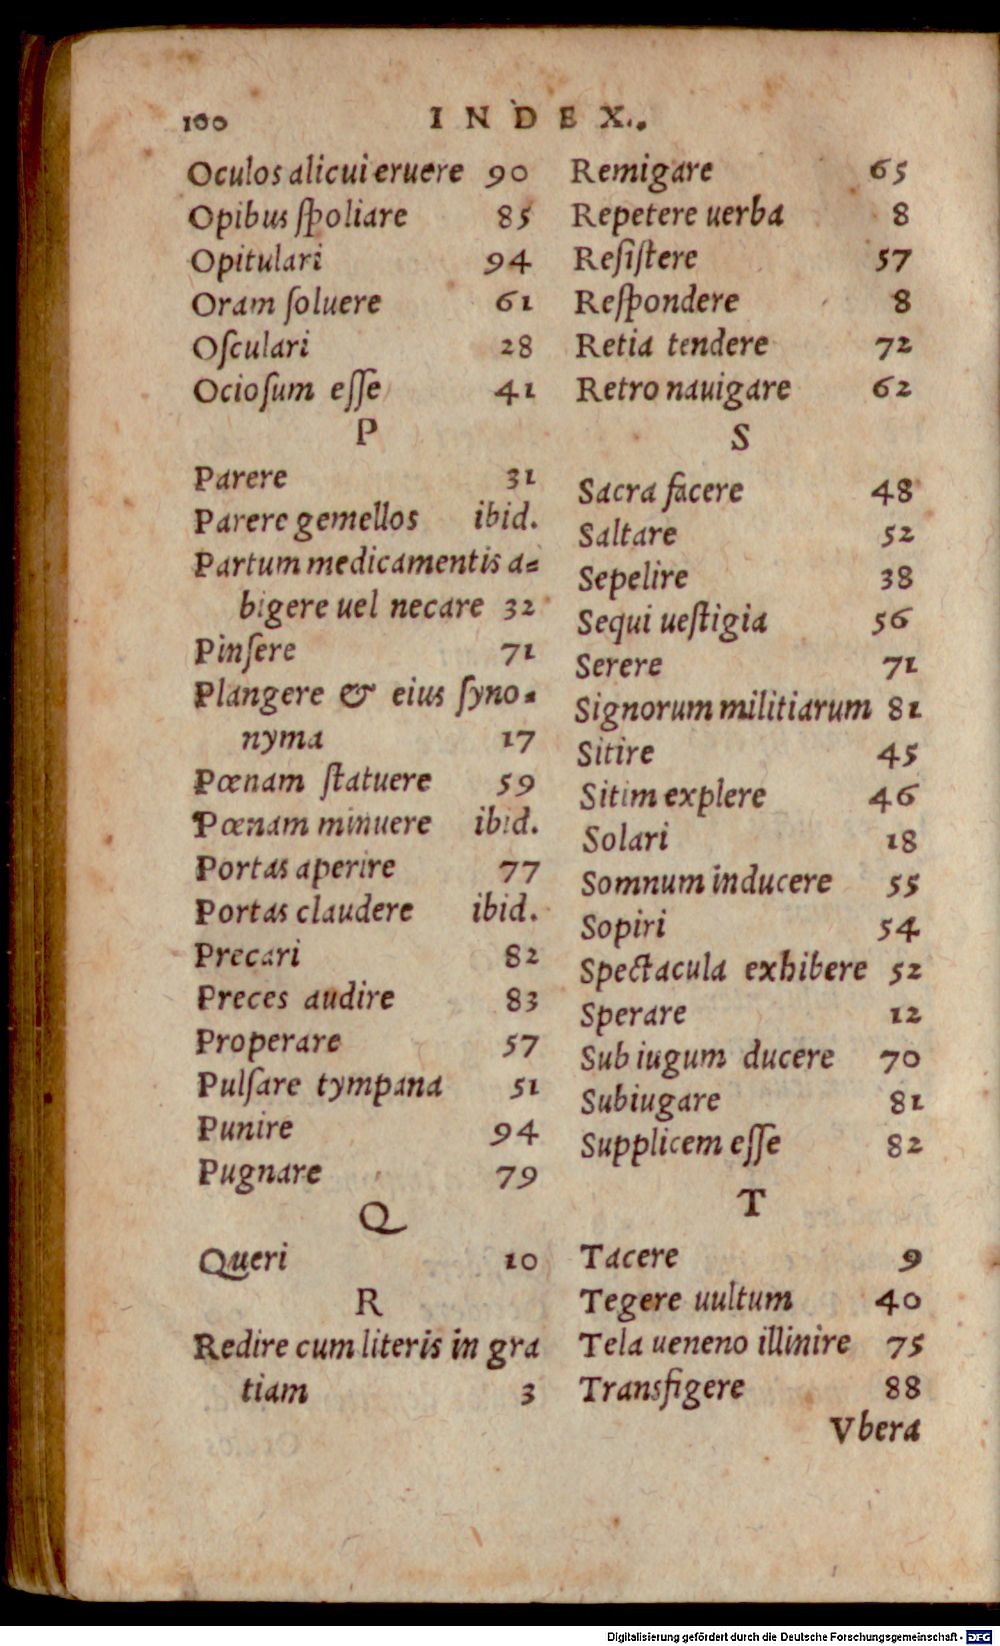 100 INDEX.
Oculos alicui eruere 90
Opibus ſpoliare 85
Opitulari 94
Oram ſoluere 61
Oſculari 28
Ocioſum eſſe 41
P
Parere 31
Parere gemellos ibid.
Partum medicamentis a-
bigere uel necare 32
Pinſere 71
Plangere & eius ſyno-
nyma 17
Pœnam ſtatuere 59
Pœnam minuere ibid.
Portas aperire 77
Portas claudere ibid.
Precari 82
Preces audire 83
Properare 57
Pulſare tympana 51
Punire 94
Pugnare 79
Q
Queri 10
R
Redire cum literis in gra
tiam 3
Remigare 65
Repetere uerba 8
Reſiſtere 57
Reſpondere 8
Retia tendere 72
Retro nauigare 62
S
Sacra facere 48
Saltare 52
Sepelire 38
Sequi ueſtigia 56
Serere 71
Signorum militiarum 81
Sitire 45
Sitim explere 46
Solari 18
Somnum inducere 55
Sopiri 54
Spectacula exhibere 52
Sperare 12
Sub iugum ducere 70
Subiugare 81
Supplicem eſſe 82
T
Tacere 9
Tegere uultum 40
Tela ueneno illinire 75
Transfigere 88
Vbera
Digitalisierung gefördert durch die Deutsche Forschungsgemeinschaft - DFG